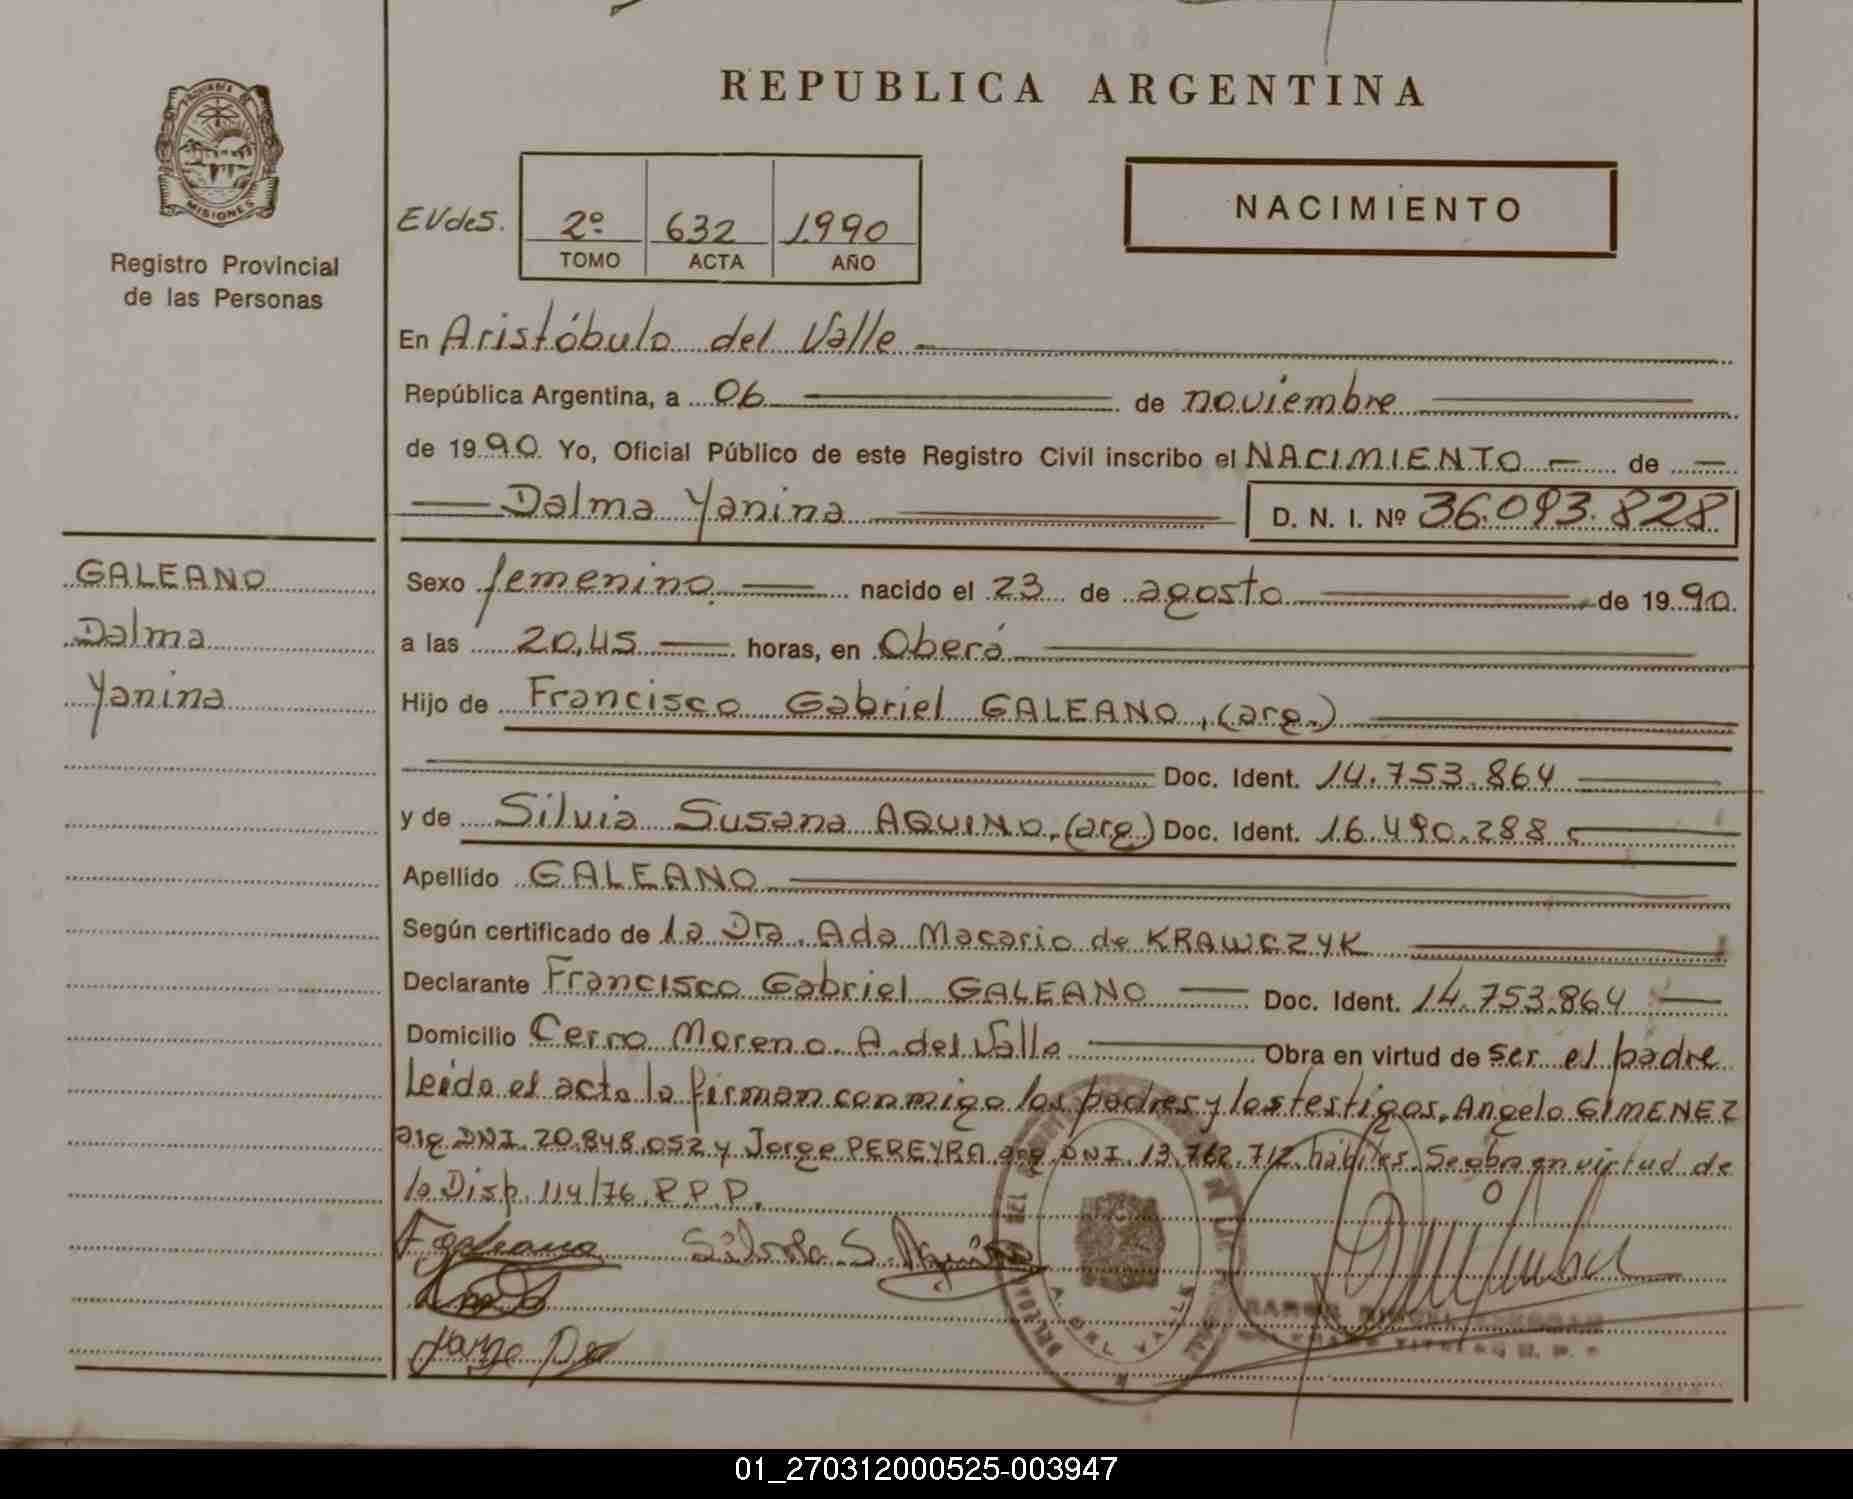 REPUBLICA ARGENTINA
PROVINCIA DE
MISIONES
Registro Provincial
de las Personas
EVdeS.
2º 632 1990
TOMO ACTA AÑO
NACIMIENTO
En Aristóbulo del Valle
República Argentina, a 06 de noviembre
de 1990 Yo, Oficial Público de este Registro Civil inscribo el NACIMIENTO de
Dalma Yanina D. N. I. Nº 36.093.828
GALEANO
Dalma
Yanina
Sexo femenino nacido el 23 de agosto de 1990.
a las 20,45 horas, en Oberá
Hijo de Francisco Gabriel GALEANO, (arg.)
Doc. Ident. 14.753.864
y de Silvia Susana AQUINO, (arg) Doc. Ident. 16.490.288
Apellido GALEANO
Según certificado de la Dra. Ada Macario de KRAWCZYK
Declarante Francisco Gabriel GALEANO Doc. Ident. 14.753.864
Domicilio Cerro Moreno. A. del Valle Obra en virtud de ser el padre
Leída el acta la firman conmigo los padres y los testigos, Angelo GIMENEZ
arg DNI. 20.848.052 y Jorge PEREYRA arg DNI. 13.762.712. hábiles. Se obra en virtud de
la Disp. 114/76 R.P.P.
F galeano Silvia S. Aquino
Jorge
A. DEL VALLE
01_270312000525-003947